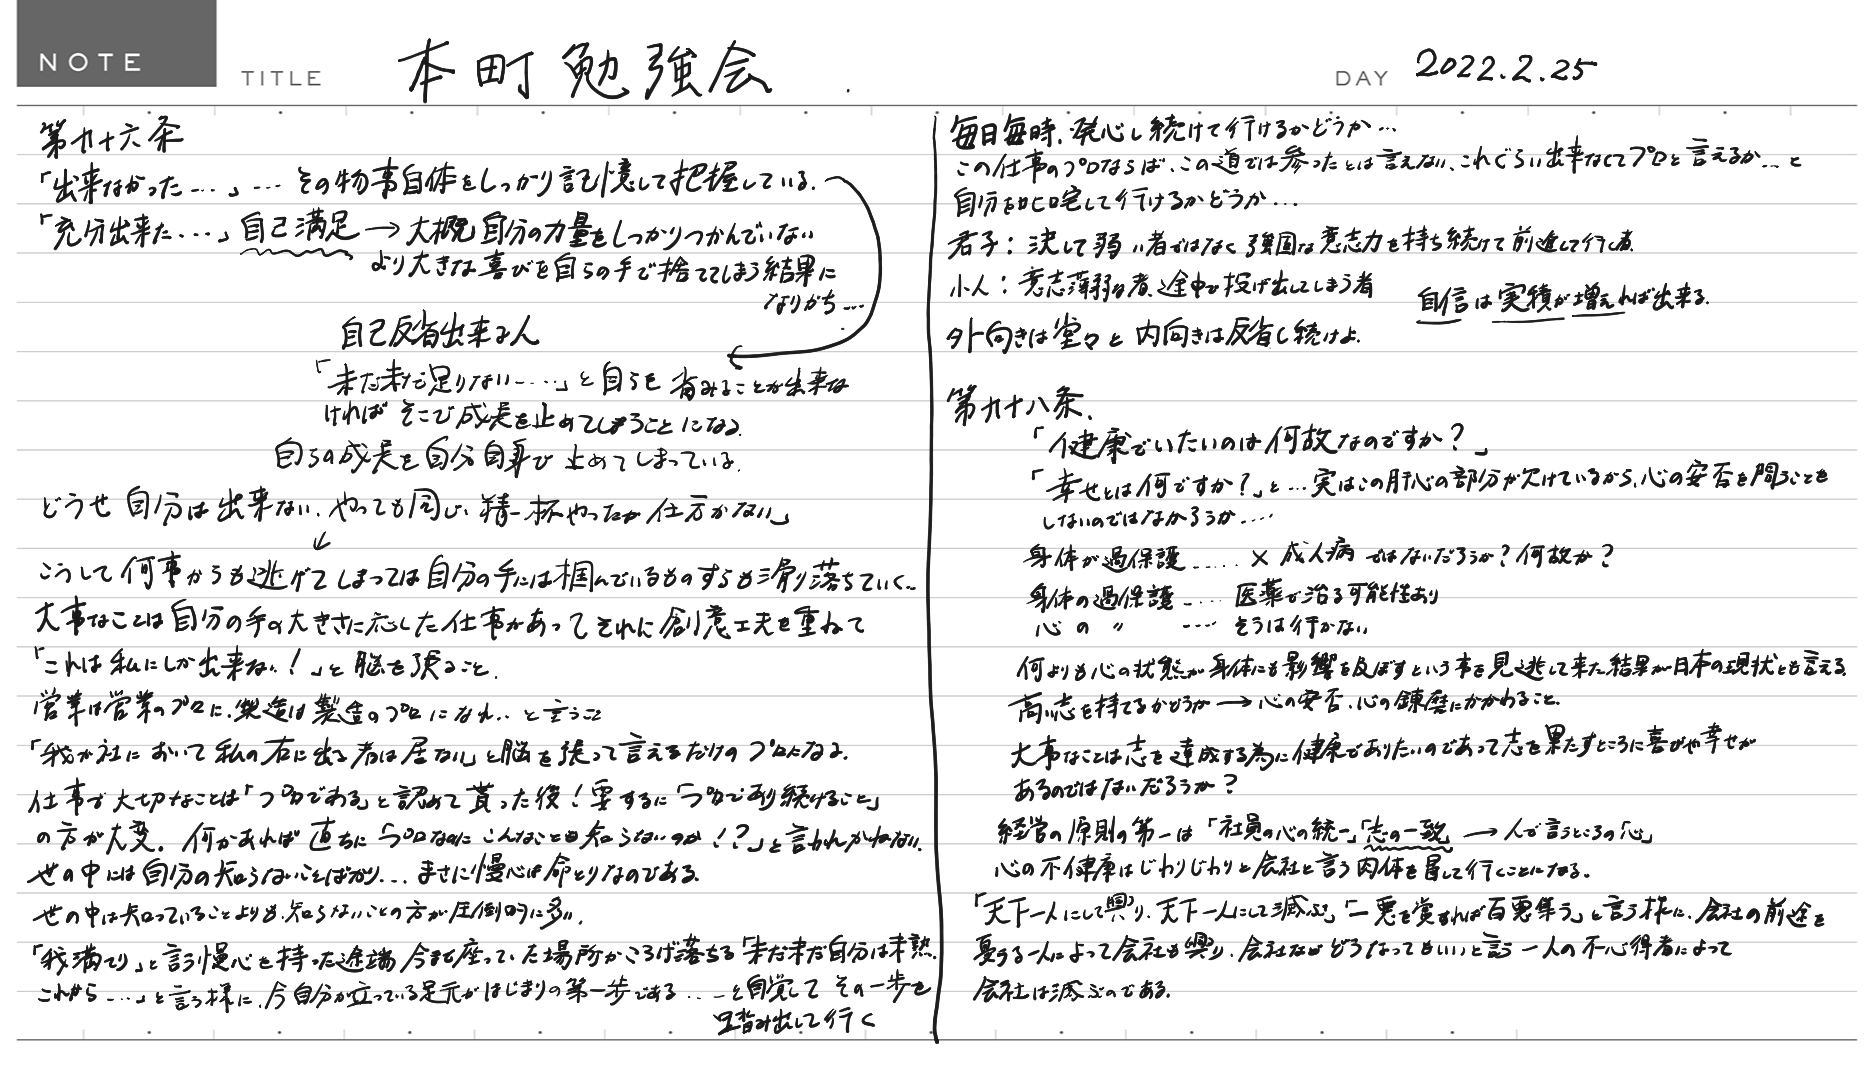 NOTE
TITLE 本町勉強会
DAY 2022.2.25
第九十六条
「出来なかった…」… その物事自体をしっかり記憶して把握している.
「充分出来た…」自己満足 → 大概自分の力量をしっかりつかんでいない
より大きな喜びを自らの手で捨ててしまう結果に
なりがち…
自己反省出来る人
「未だ未だ足りない…」と自らを省みることが出来な
ければそこで成長を止めてしまうことになる.
自らの成長を自分自身で止めてしまっている.
どうせ自分は出来ない、やっても同じ、精一杯やったが仕方がない」
↓
こうして何事からも逃げてしまっては自分の手には掴んでいるものすらも滑り落ちていく…
大事なことは自分の手の大きさに応じた仕事があってそれに創意工夫を重ねて
「これは私にしか出来ない!」と脳を張ること.
営業は営業のプロに、製造は製造のプロになれ‥と言うこ
「我が社において私の右に出る者は居ない」と脳を張って言えるだけのプロになる.
仕事で大切なことは「プロである」と認めて貰った後!要するに「プロであり続けること」
の方が大変. 何かあれば直ちに「プロなのにこんなことも知らないのか!?」と言われかねない.
世の中には自分の知らないことばかり… まさに慢心は命とりなのである.
世の中は知っていることよりも、知らないことの方が圧倒的に多い.
「我満てり」と言う慢心を持った途端今まで座っていた場所からころげ落ちる「未だ未だ自分は未熟.
これから…」と言う様に、今自分が立っている足元がはじまりの第一歩である…と自覚してその一歩を
踏み出して行く
毎日毎時、発心し続けて行けるかどうか…
この仕事のプロならば、この道では参ったとは言えない、これぐらい出来なくてプロと言えるか…と
自分を叱咤して行けるかどうか…
君子: 決して弱い者ではなく強固な意志力を持ち続けて前進して行く者.
小人: 意志薄弱な者、途中で投げ出してしまう者
自信は実績が増えれば出来る.
外向きは堂々と 内向きは反省し続けよ.
第九十八条.
「健康でいたいのは何故なのですか?」
「幸せとは何ですか?」と… 実はこの肝心の部分が欠けているから、心の安否を問うことも
しないのではなかろうか…
身体が過保護…… × 成人病ではないだろうか?何故か?
身体の過保護…… 医薬で治る可能性あり
心の 〃 …… そうは行かない
何よりも心の状態が身体にも影響を及ぼすという事を見逃して来た結果が日本の現状とも言える.
高い志を持てるかどうか → 心の安否、心の錬磨にかかわること.
大事なことは志を達成する為に健康でありたいのであって志を果たすところに喜びや幸せが
あるのではないだろうか?
経営の原則の第一は「社員の心の統一」「志の一致」 → 人が言うところの「心」
心の不健康はじわりじわりと会社と言う肉体を冒して行くことになる.
「天下一人にして興り、天下一人にして滅ぶ」「一悪を賞すれば百悪集う」と言う様に、会社の前途を
憂する一人によって会社も興り、会社などどうなってもいいと言う一人の不心得者によって
会社は滅ぶのである.